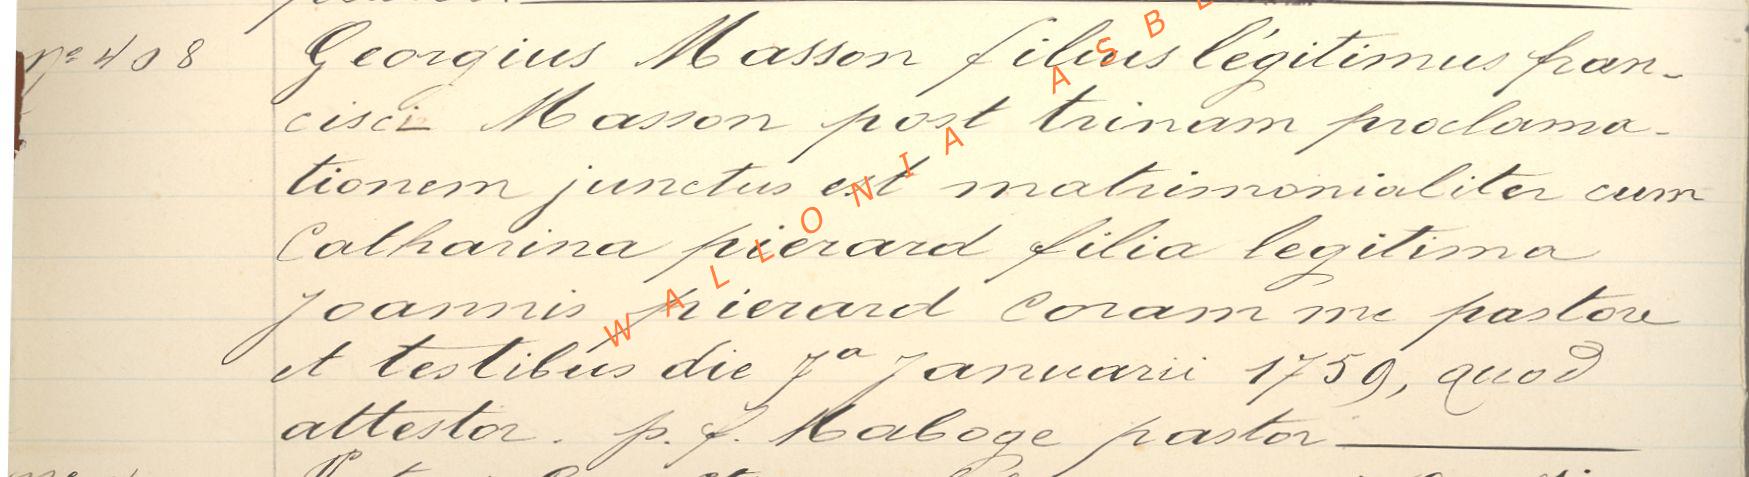 nº 408 Georgius Masson filius légitimus fran-
cisci Masson post trinam proclama-
tionem junctus est matrimonialiter cum
Catharina pierard filia legitima
Joannis pierard coram me pastore
et testibus die 7ª Januarii 1759, quod
attestor. p. f. Maboge pastor
WALLONIA ASBL